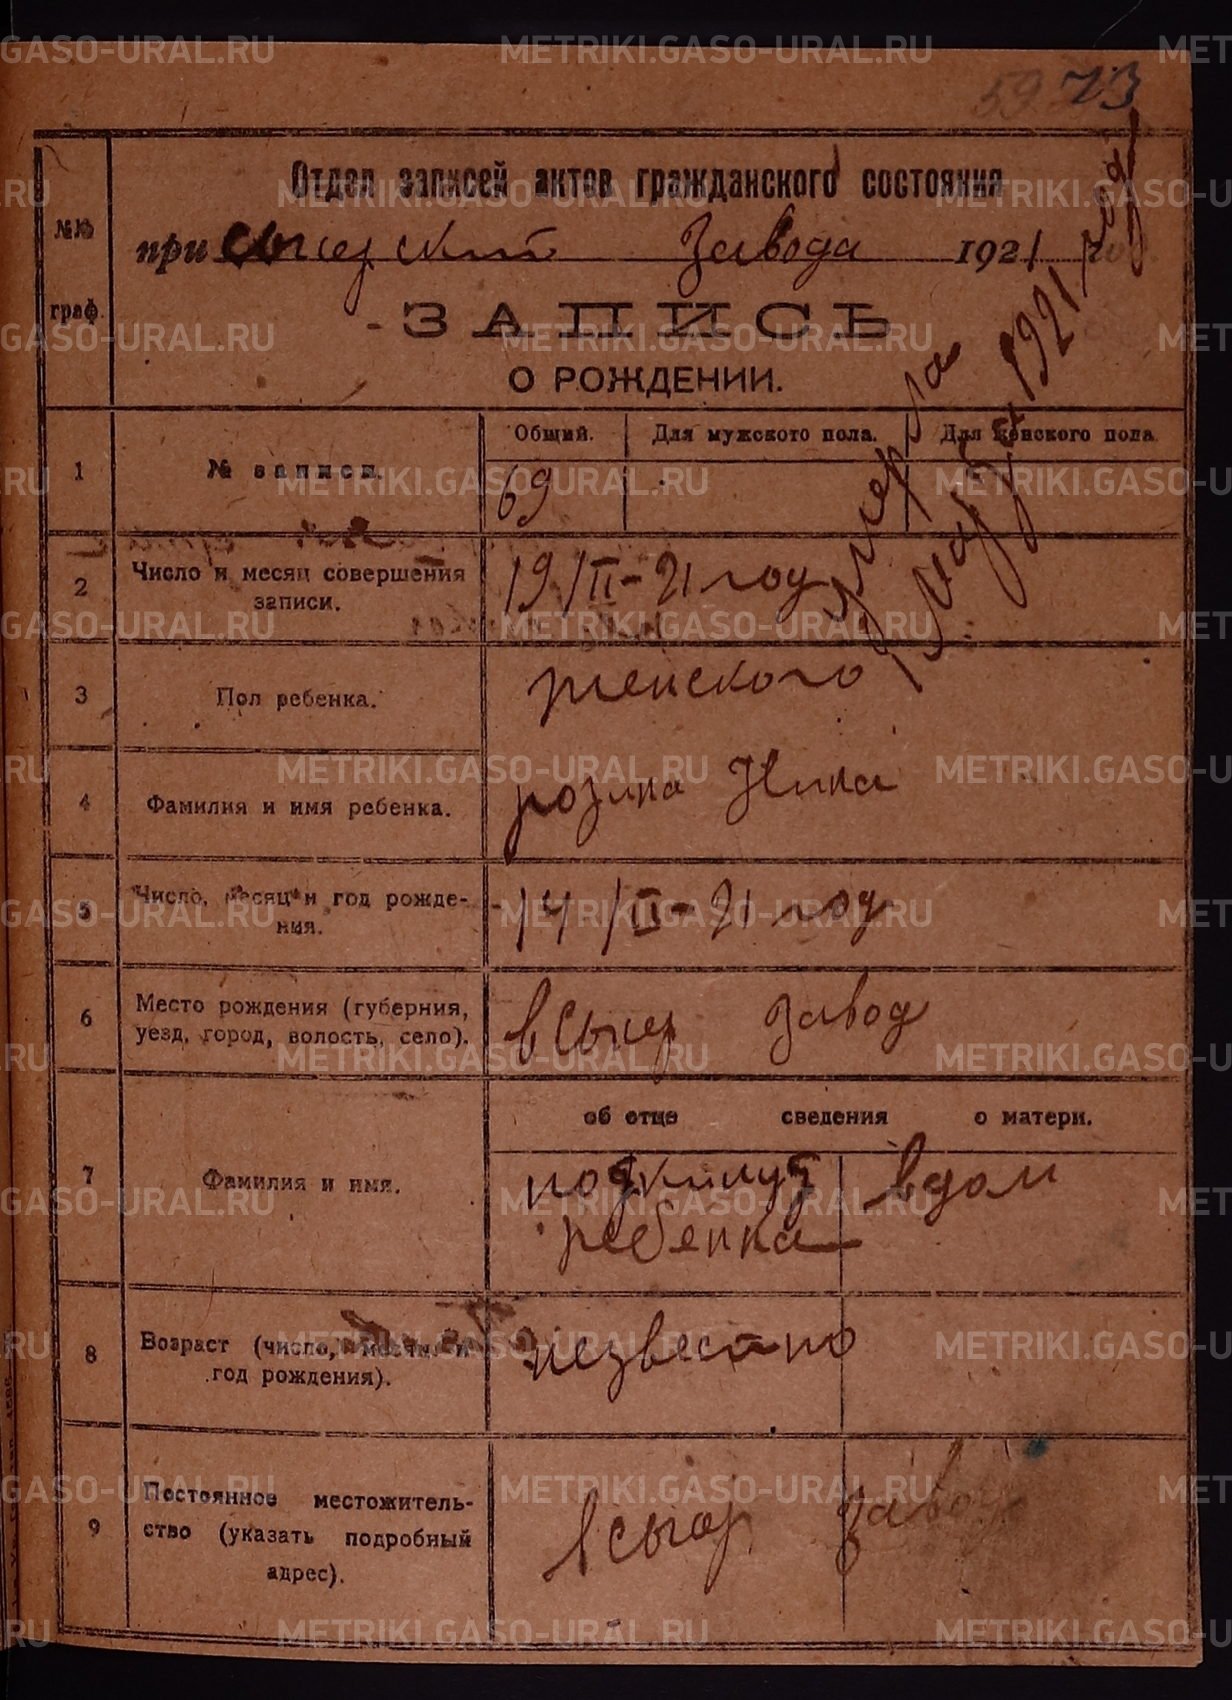 73
Отдел записей актов гражданского состояния
№№ граф.
при Завода 1921 год
ЗАПИСЬ
О РОЖДЕНИИ.
умерла
1921 года
1
№ записи.
Общий.
Для мужского пола.
Для женского пола
69
2
Число и месяц совершения
записи.
19/II-21 год
3
Пол ребенка.
женского
4
Фамилия и имя ребенка.
розина Нина
5
Число, месяц и год рожде-
ния.
14/II-21 год
6
Место рождения (губерния,
уезд, город, волость, село).
в Сысер завод
об отце сведения о матери.
7
Фамилия и имя.
подкинут вдом
ребенка
8
Возраст (число, месяц и
год рождения).
незвестно
9
Постоянное местожитель-
ство (указать подробный
адрес).
завод
METRIKI.GASO-URAL.RU